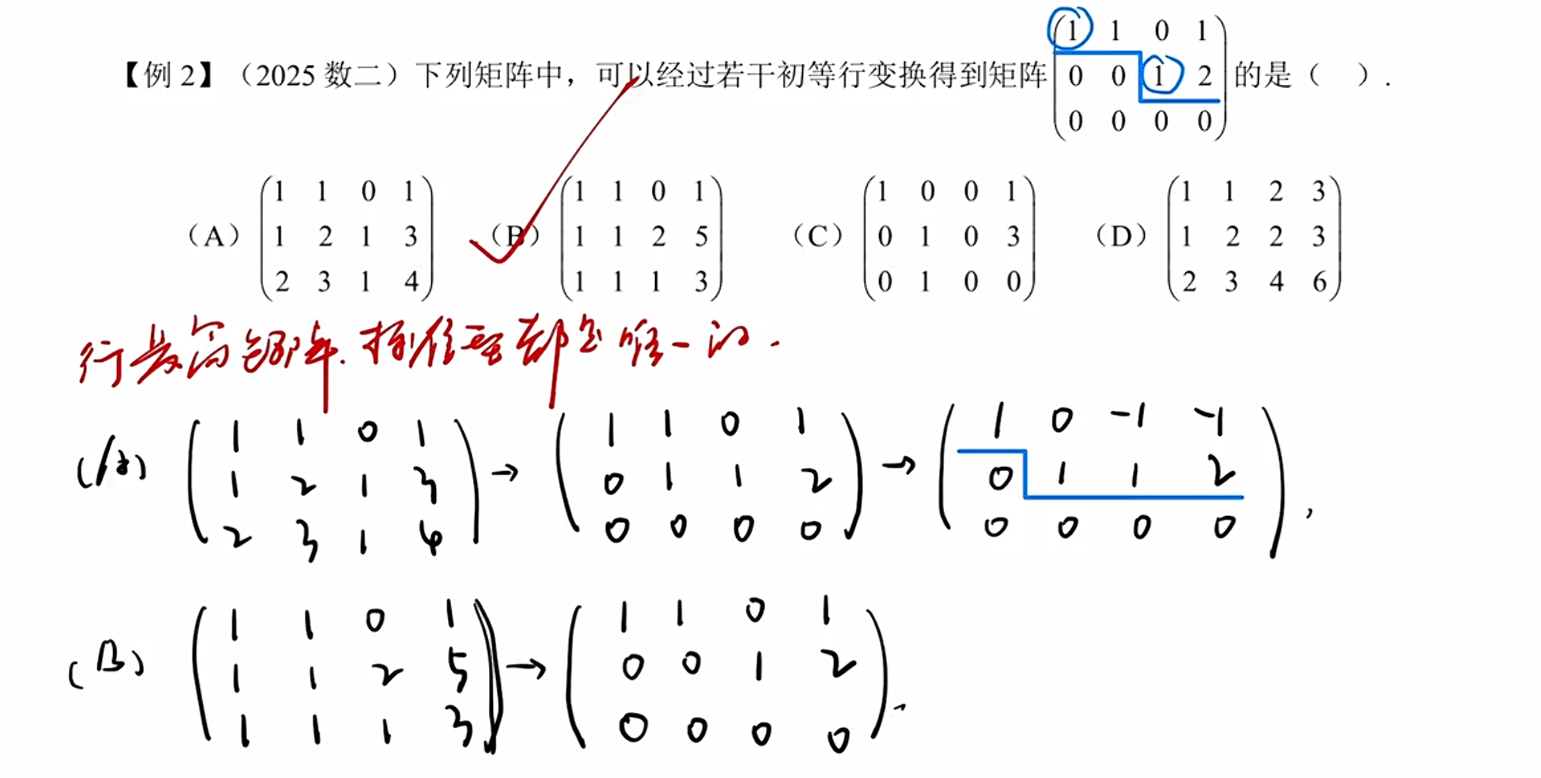 【例 2】（2025 数二）下列矩阵中，可以经过若干初等行变换得到矩阵 (1 1 0 1; 0 0 1 2; 0 0 0 0) 的是（　）.
（A）(1 1 0 1; 1 2 1 3; 2 3 1 4)　（B）(1 1 0 1; 1 1 2 5; 1 1 1 3)　（C）(1 0 0 1; 0 1 0 3; 0 1 0 0)　（D）(1 1 2 3; 1 2 2 3; 2 3 4 6)
行最简阶梯阵.标准型都是唯一的.
(A) (1 1 0 1; 1 2 1 3; 2 3 1 4) → (1 1 0 1; 0 1 1 2; 0 0 0 0) → (1 0 -1 -1; 0 1 1 2; 0 0 0 0),
(B) (1 1 0 1; 1 1 2 5; 1 1 1 3) → (1 1 0 1; 0 0 1 2; 0 0 0 0).